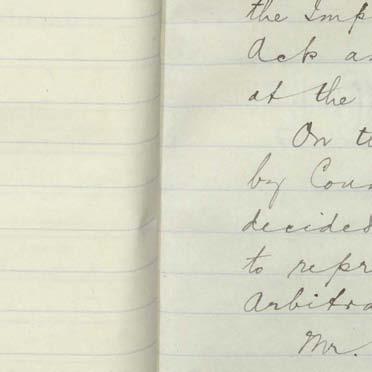 the Imp
Ack a
at the
On t
by Coun
decided
to repr
Arbitra
Mr.